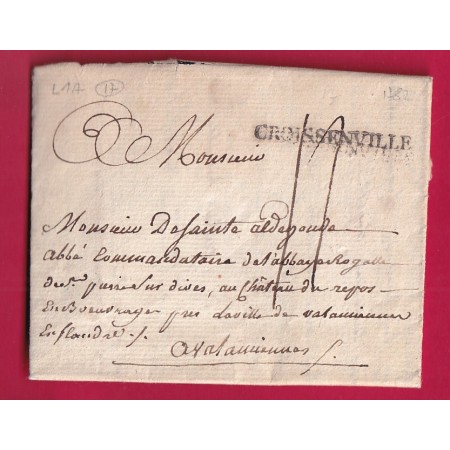 L17 17 1782
CROISSENVILLE
Monsieur
Monsieur De Sainte aldegonde
abbé Commandataire de l'abbaye Royalle
de St. pierre sur dives, au Château du repos
pres la ville de valanciennes
En flandre
a valanciennes